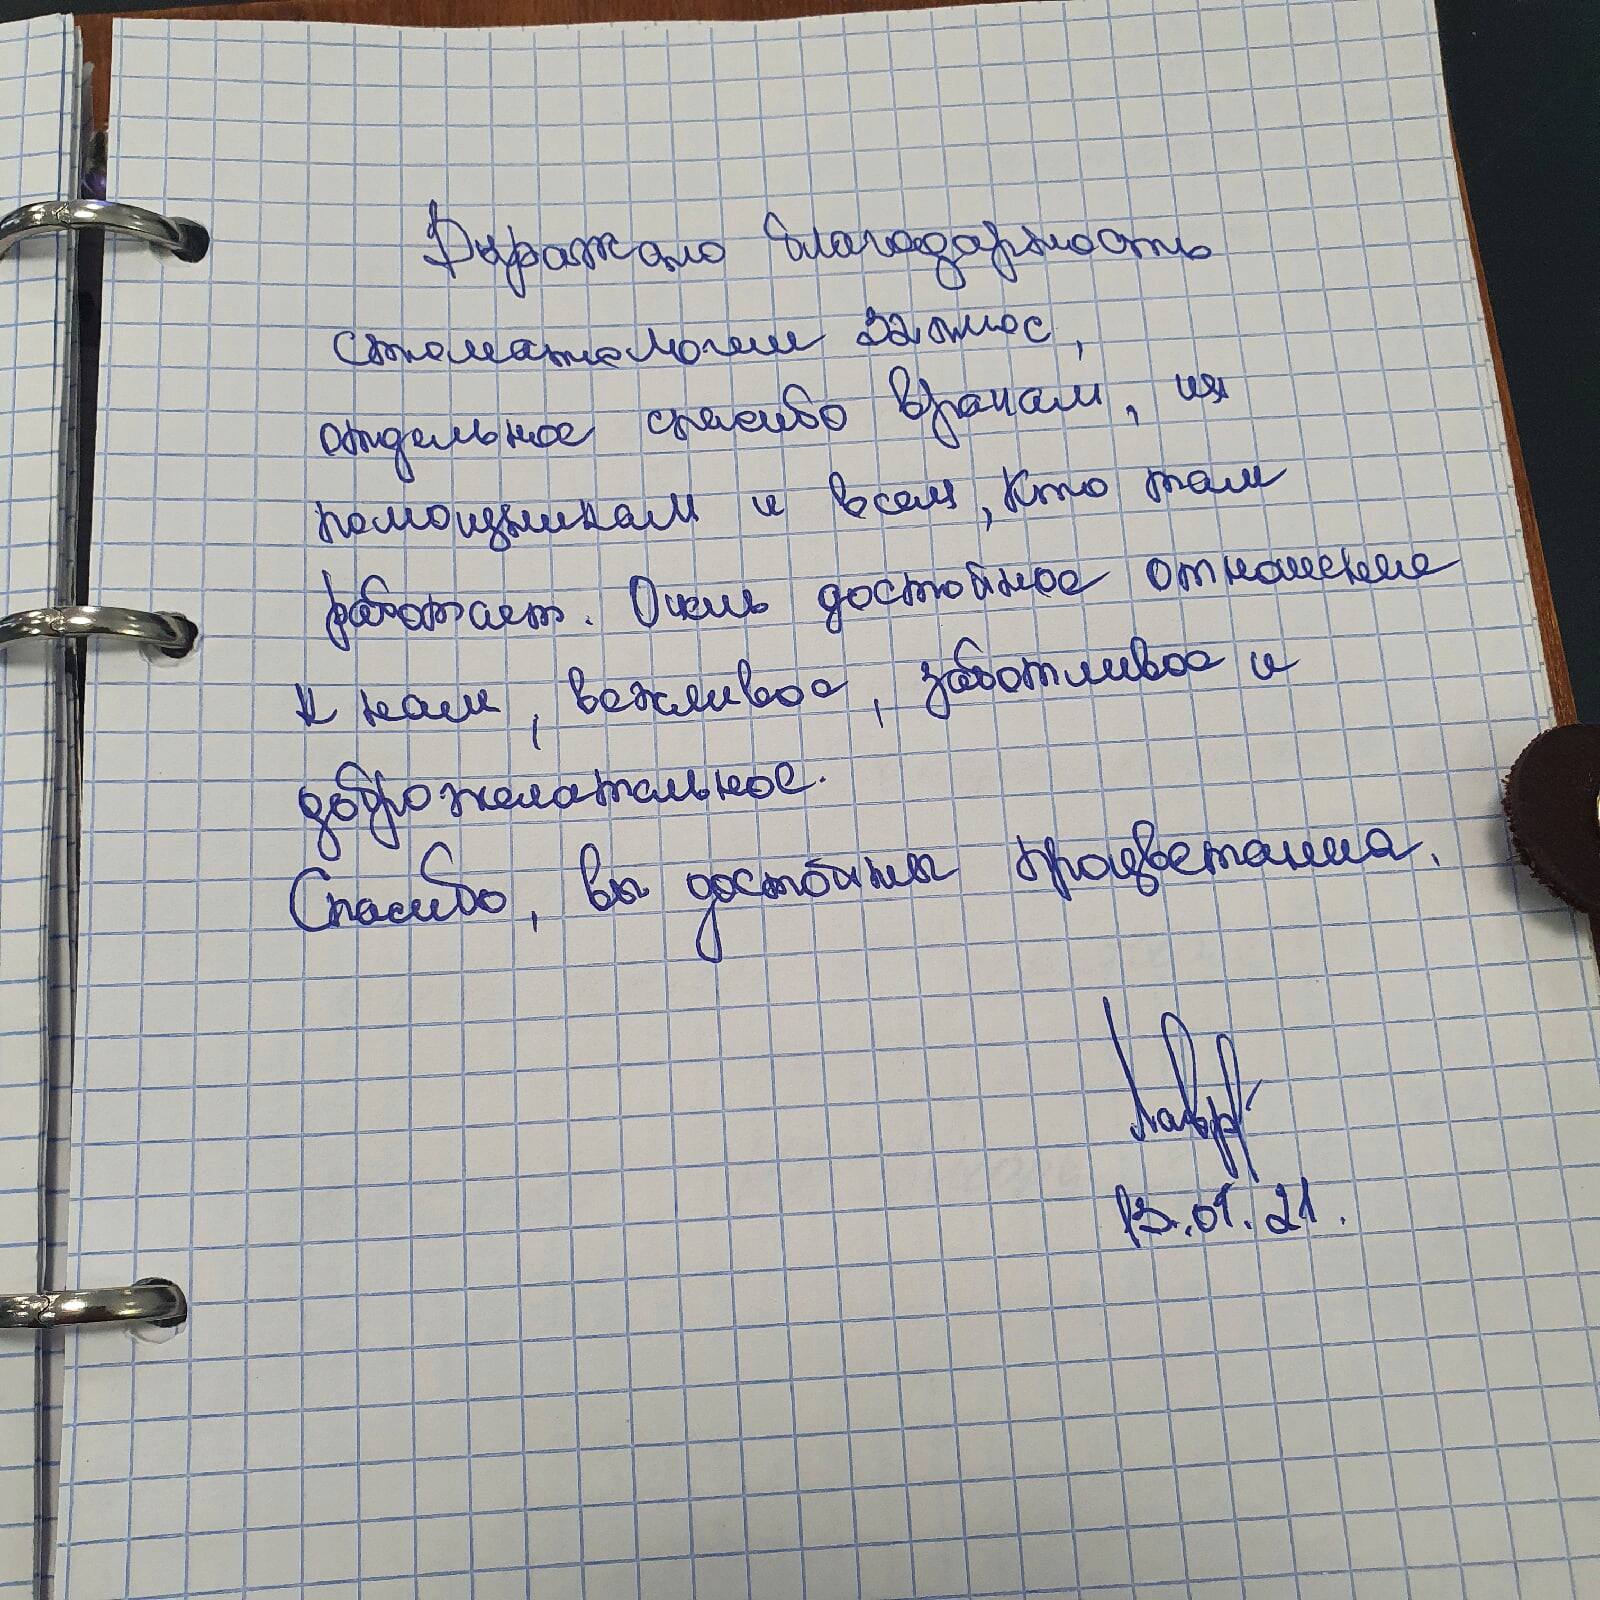 Выражаю благодарность
стоматологии 32 плюс,
отдельное спасибо врачам, их
помощникам и всем, кто там
работает. Очень достойное отношение
к нам, вежливое, заботливое и
доброжелательное.
Спасибо, вы достойны процветания.
13.01.21.